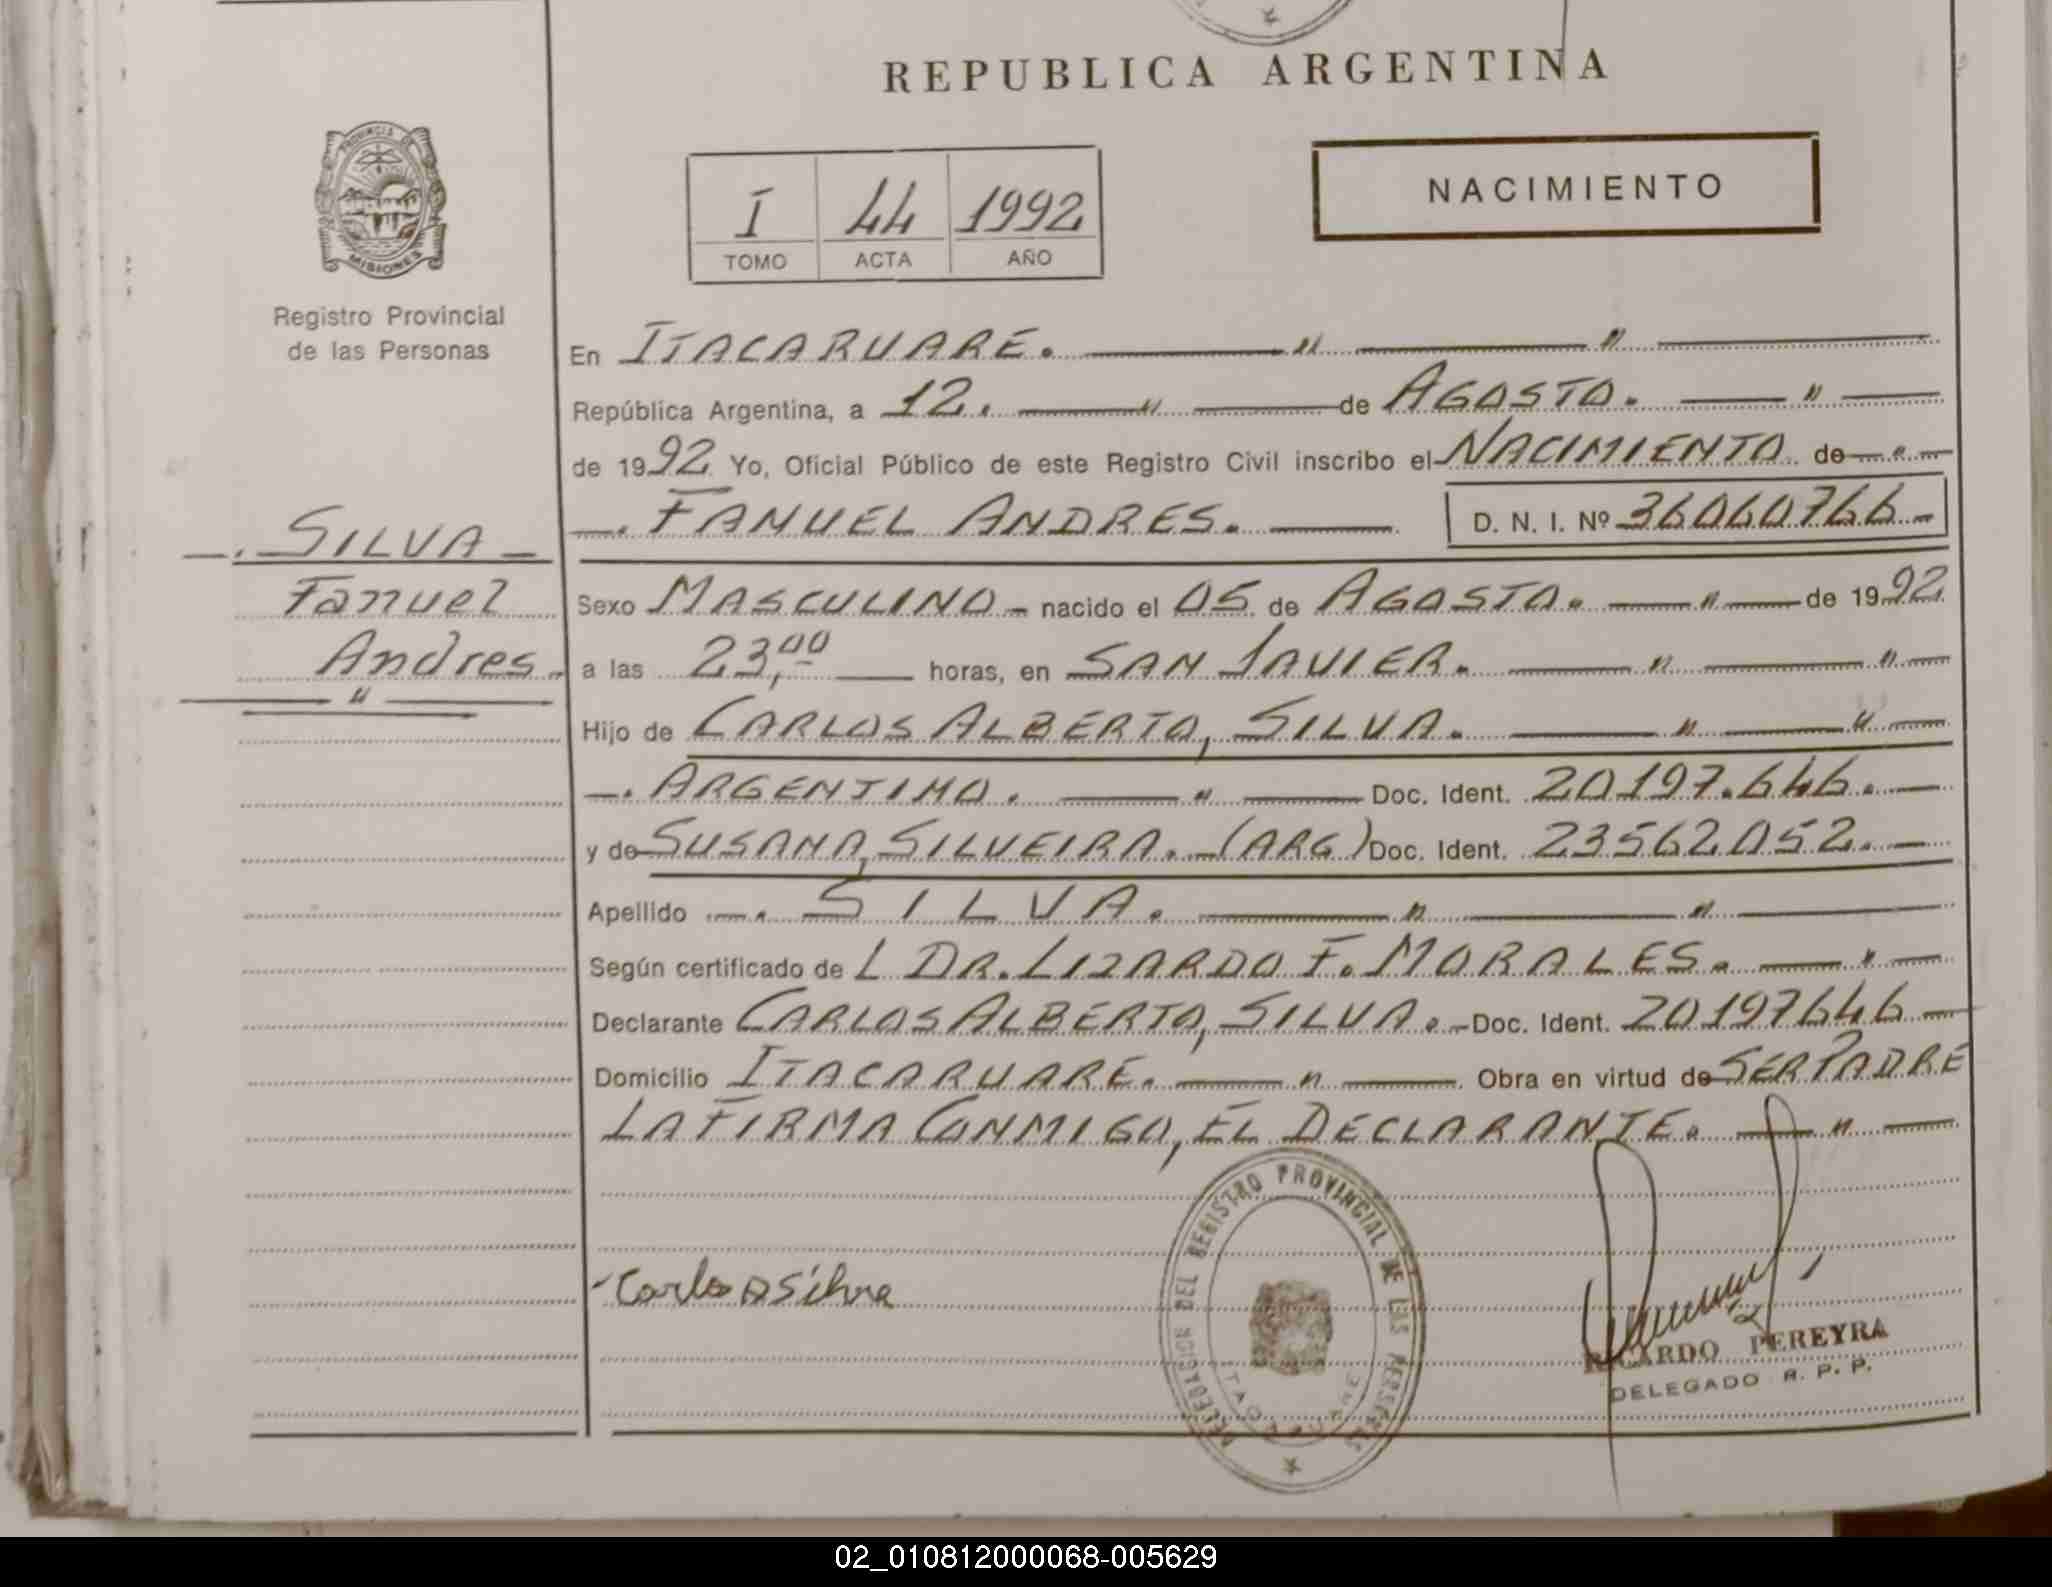 REPUBLICA ARGENTINA
PROVINCIA DE
MISIONES
Registro Provincial
de las Personas
I 44 1992
TOMO ACTA AÑO
NACIMIENTO
En ITACARUARE. — " — " —
República Argentina, a 12. — " — de AGOSTO. — " —
de 1992 Yo, Oficial Público de este Registro Civil inscribo el NACIMIENTO de — " —
—. FANUEL ANDRES. — D. N. I. Nº 36060766 —
—. SILVA —
Fanuel
Andres.
— " —
Sexo MASCULINO — nacido el 05 de AGOSTO. — " — de 1992
a las 23,00 — horas, en SAN JAVIER. — " — " —
Hijo de CARLOS ALBERTO, SILVA. — " — " —
—. ARGENTINO. — " — Doc. Ident. 20197.646. —
y de SUSANA, SILVEIRA. — (ARG) Doc. Ident. 23562052. —
Apellido —. SILVA. — " — " —
Según certificado de L DR. LIZARDO F. MORALES. — " —
Declarante CARLOS ALBERTO, SILVA. — Doc. Ident. 20197646 —
Domicilio ITACARUARE. — " — . Obra en virtud de SER PADRE
LA FIRMA CONMIGO, EL DECLARANTE. — " —
Carlos A Silva
DELEGACION DEL REGISTRO PROVINCIAL DE LAS PERSONAS
ITACARUARE
RICARDO PEREYRA
DELEGADO R. P. P.
02_010812000068-005629